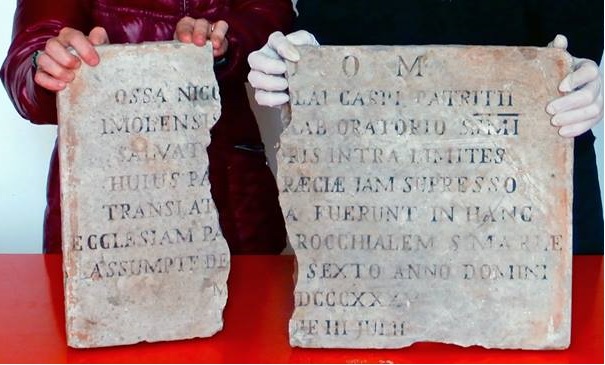 O M
OSSA NICOLAI CARPI PATRITII
IMOLENSIS AB ORATORIO SSMI
SALVATORIS INTRA LIMITES
HUIUS PARÆCIÆ JAM SUPRESSO
TRANSLATA FUERUNT IN HANC
ECCLESIAM PAROCCHIALEM S MARIÆ
ASSUMPTÆ DE SEXTO ANNO DOMINI
DIE III JULII